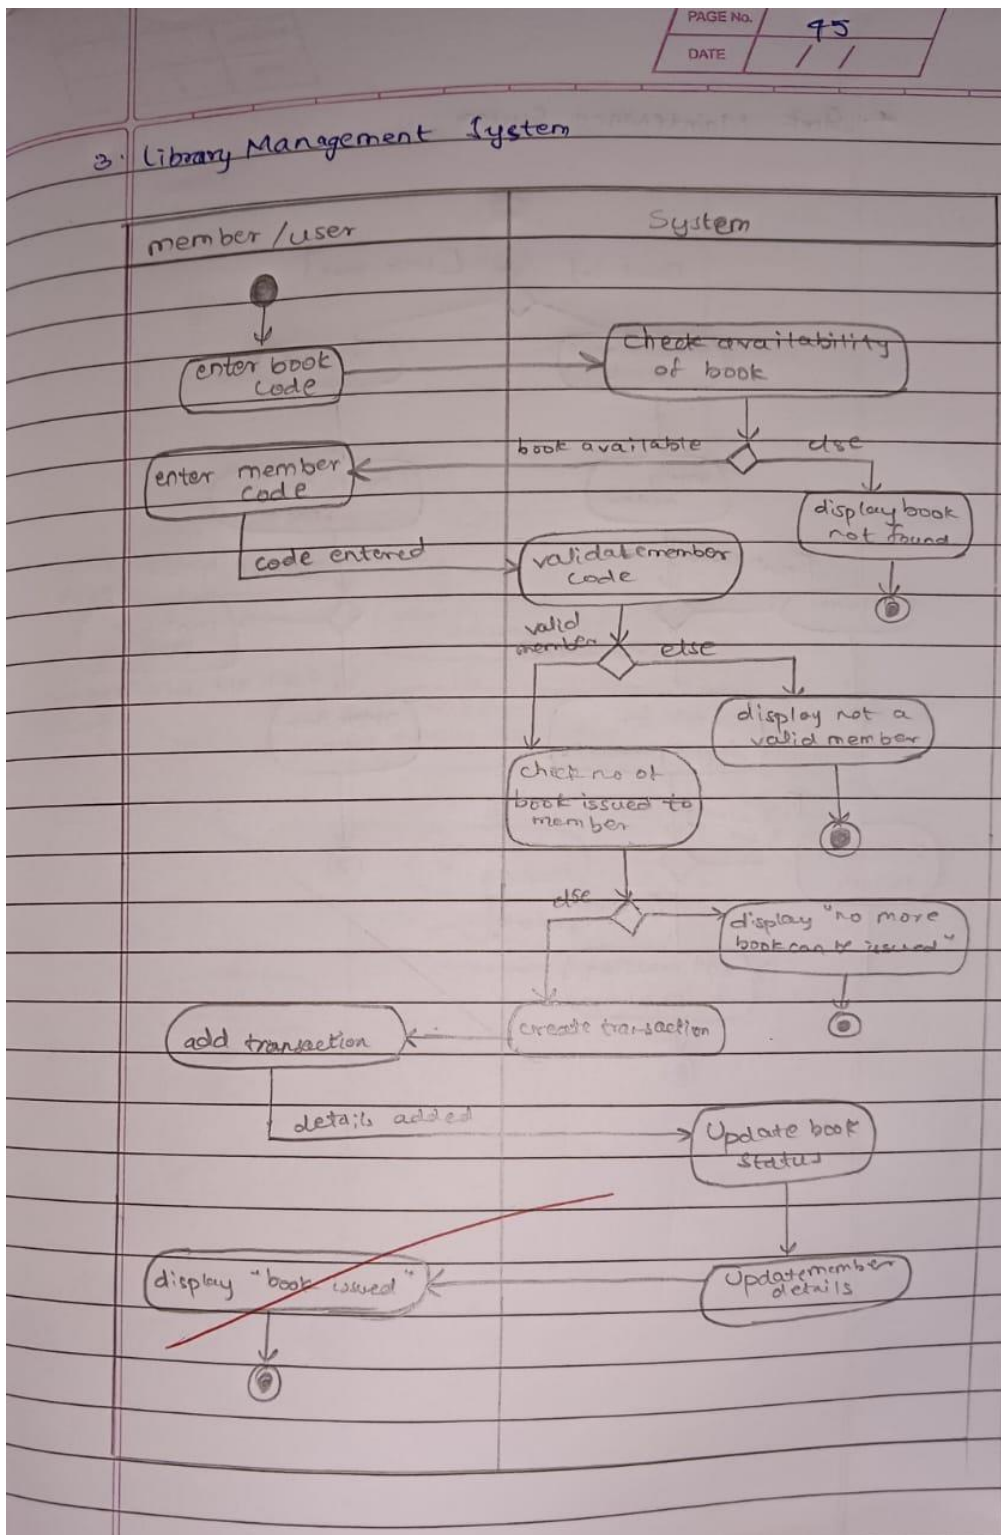 PAGE No. 45
DATE / /
3. Library Management System
member/user
System
enter book
code
check availability
of book
book available
else
enter member
code
display book
not found
code entered
validate member
code
valid
member
else
display not a
valid member
check no of
book issued to
member
else
display "no more
book can be issued"
create transaction
add transaction
details added
Update book
status
display "book issued"
Update member
details